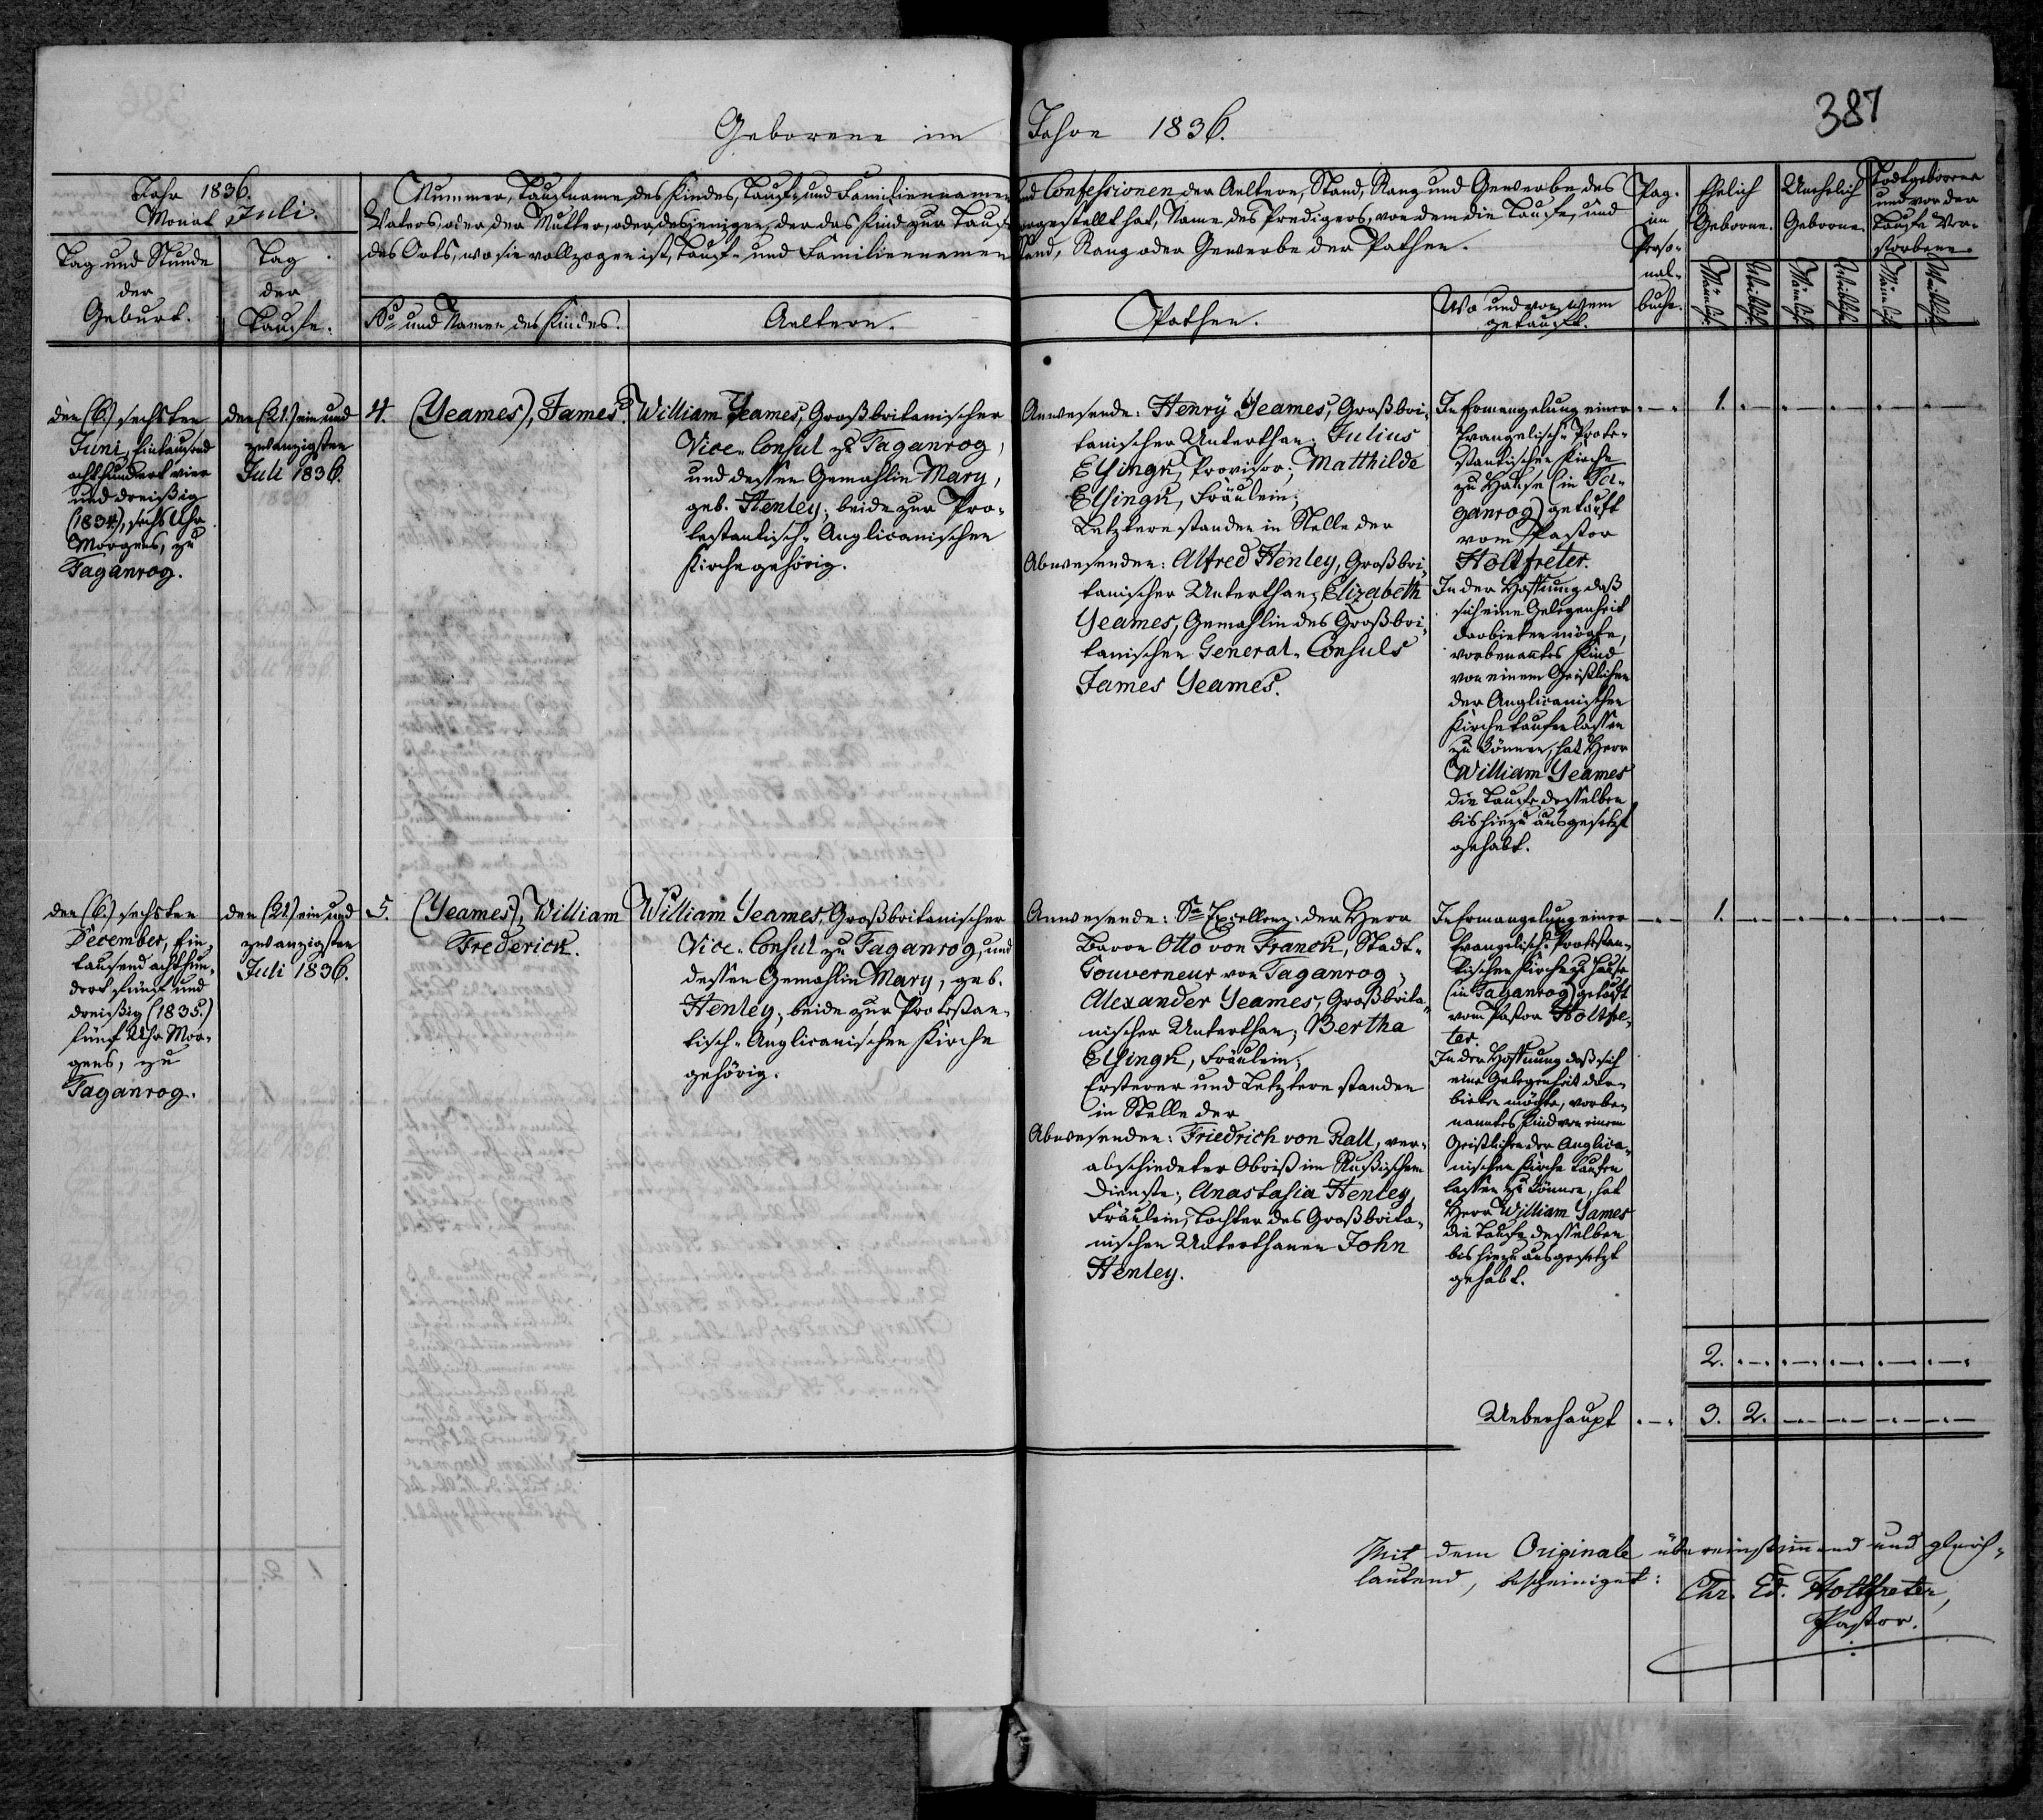 387
Geborene im Jahre 1836.
Jahr 1836.
Monat Juli
Tag und Stunde
der
Geburt.
Tag
der
Taufe.
Nummer, Taufname des Kindes, Tauf- und Familiennamen und Confessionen der Aeltern, Stand, Rang und Gewerbe des
Vaters, oder der Mutter, oder desjenigen, der das Kind zur Taufe vorgestellt hat, Name des Predigers, von dem die Taufe, und
des Orts, wo sie vollzogen ist, Tauf- und Familiennamen Stand, Rang oder Gewerbe der Pathen.
No und Namen des Kindes.
Aeltern.
Pathen.
Wo und von wem
getauft.
Pag.
im
Perso-
nal-
buche.
Ehelich
Geborene.
Unehelich
Geborene.
Todtgeborene
und vor der
Taufe Ver-
storbene.
Männlich.
Weiblich.
Männlich
Weiblich
Männlich
Weiblich
den (6.) sechsten
Juni, Eintausend
achthundert vier
und dreißig
(1834), sechs Uhr
Morgens, zu
Taganrog.
den (21.) ein und
zwanzigsten
Juli 1836.
4. (Yeames), James.
William Yeames, Großbritanischer
Vice-Consul zu Taganrog,
und dessen Gemahlin Mary,
geb. Henley; beide zur Pro-
testantisch-Anglicanischen
Kirche gehörig.
Anwesende: Henry Yeames, Großbri-
tanischer Unterthan; Julius
Elsingk, Provisor; Matthilde
Elsingk, Fräulein;
Letztere standen in Stelle der
Abwesenden: Alfred Henley, Großbri-
tanischer Unterthan; Elizabeth
Yeames, Gemahlin des Großbri-
tanischen General-Consuls
James Yeames.
In Ermangelung einer
Evangelisch-Prote-
stantischen Kirche
zu Hause (in Ta-
ganrog) getauft
vom Pastor
Holtfreter.
In der Hoffnung daß
sich eine Gelegenheit
darbieten mögte,
vorbenanntes Kind
von einem Geistlichen
der Anglicanischen
Kirche taufen lassen
zu können, hat Herr
William Yeames
die Taufe desselben
bis hiezu ausgesetzt
gehabt.
1.
den (6.) sechsten
December, Ein-
tausend achthun-
dert fünf und
dreißig (1835.)
fünf Uhr Mor-
gens, zu
Taganrog.
den (21.) ein und
zwanzigsten
Juli 1836.
5. (Yeames), William
Frederick.
William Yeames, Großbritanischer
Vice-Consul zu Taganrog, und
dessen Gemahlin Mary, geb.
Henley; beide zur Protestan-
tisch-Anglicanischen Kirche
gehörig.
Anwesende: Se Excellenz: der Herr
Baron Otto von Franck, Stadt-
Gouverneur von Taganrog;
Alexander Yeames, Großbrita-
nischer Unterthan; Bertha
Elsingk, Fräulein;
Ersterer und Letztere standen
in Stelle der
Abwesenden: Friedrich von Rall, ver-
abschiedeter Obrist im Rußischem
Dienste; Anastasia Henley,
Fräulein, Tochter des Großbrita-
nischen Unterthanen John
Henley.
In Ermangelung einer
Evangelisch-Protestan-
tischen Kirche zu Hause
(in Taganrog) getauft
vom Pastor Holtfre-
ter.
In der Hoffnung daß sich
eine Gelegenheit dar-
bieten möchte, vorbe-
nanntes Kind von einem
Geistlichen der Anglica-
nischen Kirche taufen
lassen zu können, hat
Herr William Yames
die Taufe desselben
bis hiezu ausgesetzt
gehabt.
1.
2.
Ueberhaupt 3. 2.
Mit dem Originale übereinstimmend und gleich-
lautend, bescheiniget:
Chr. Ed. Holtfreter,
Pastor.